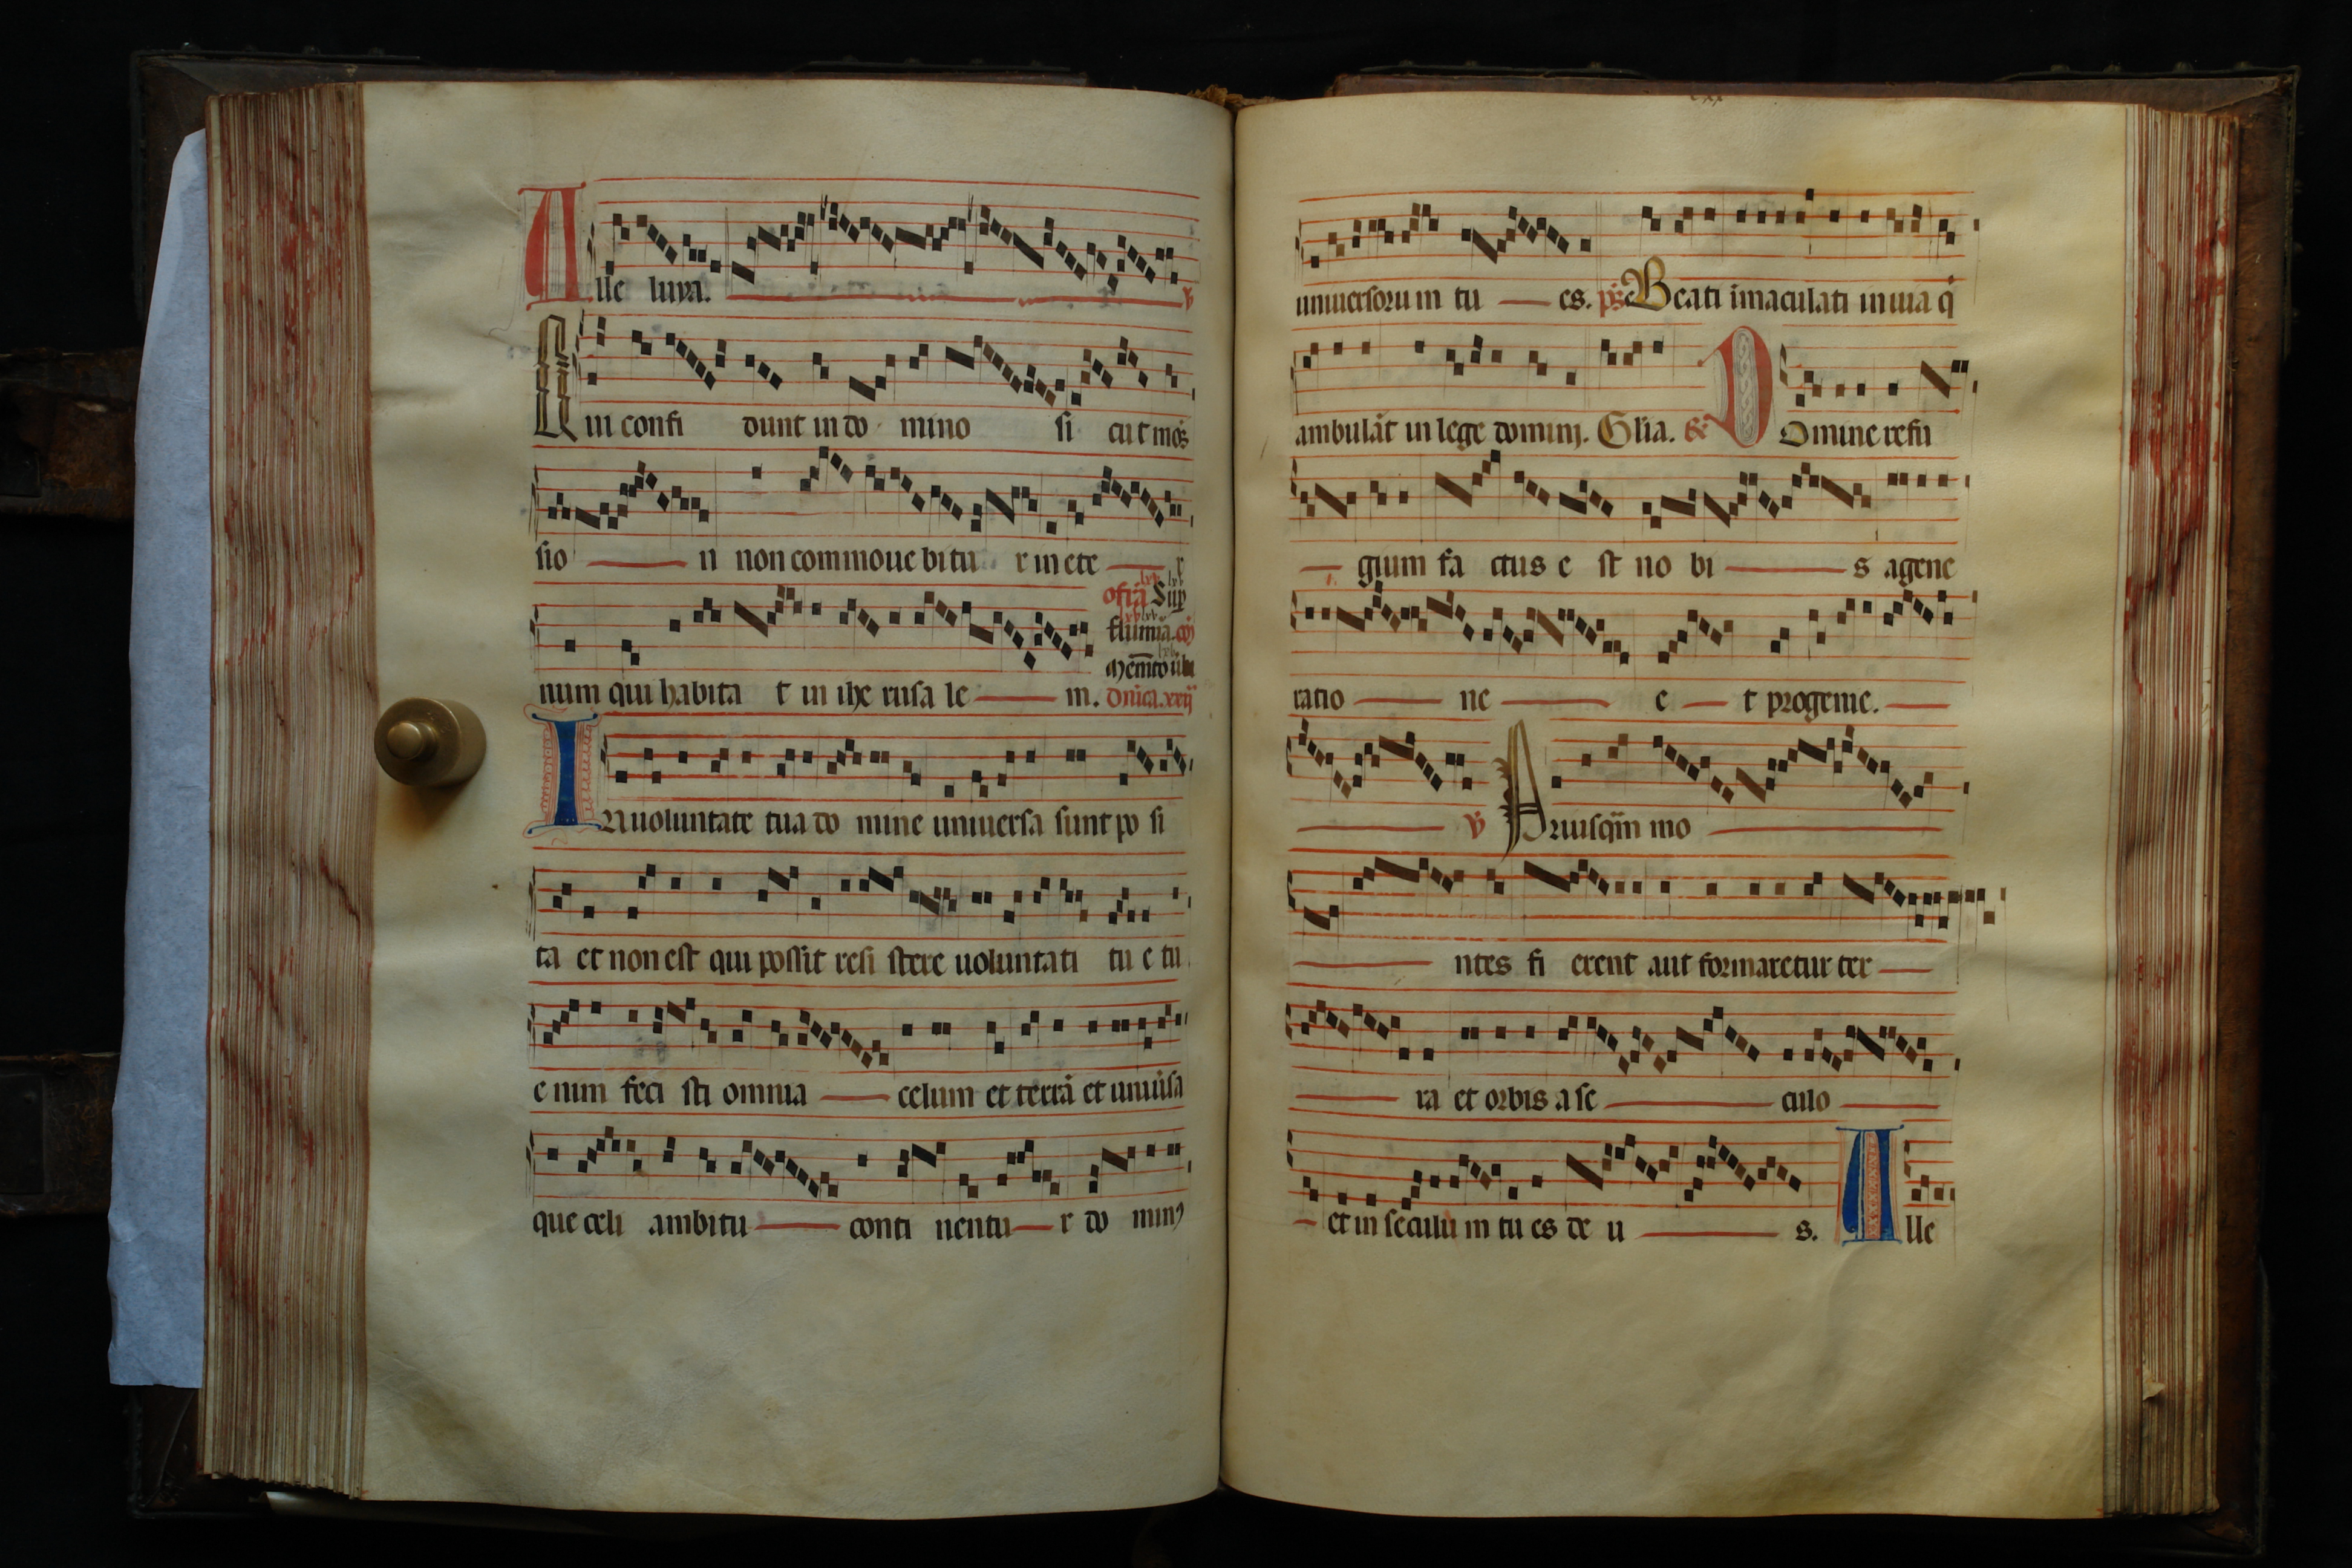 Alle luya. ℣
Qui confi dunt in do mino si cut mōs
sio n non commoue bitu r in ete r
ofrā Sup
flumīa. cō̄
num qui habita t in ihe rusa le m. dnica. xxij
Mem̄to ūbi
In uoluntate tua do mine uniuersa sunt po si
ta et non est qui possit resi stere uoluntati tu e tu
e nim feci sti omnia celum et terrā et uniu̇sa
que celi ambitu conti nentu r do minꝰ
uniuersoru m tu es. ps. Beati īmaculati in uia q̇
ambulāt in lege dominj. Glīa. & Domine refu
gium fa ctus e st no bi s a gene
ratio ne e t progenie.
℣ Priusq̄m mo
ntes fi erent aut formaretur ter
ra et orbis a se culo
et in seculu m tu es de u s. Alle